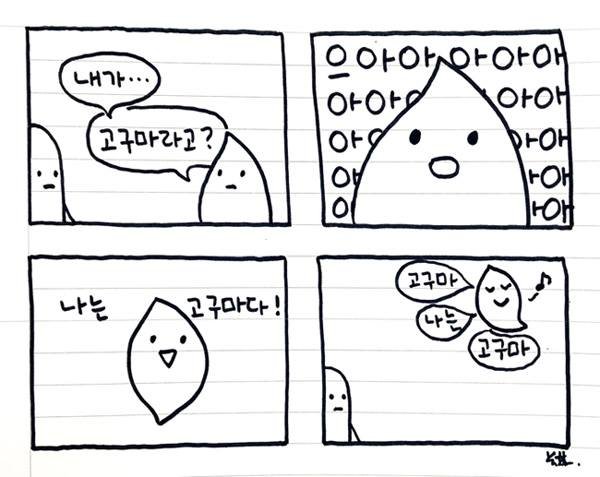 내가…
고구마라고?
으아아아아아아
아아아아아
아아아
아아
아아
나는
고구마다!
고구마
나는
고구마